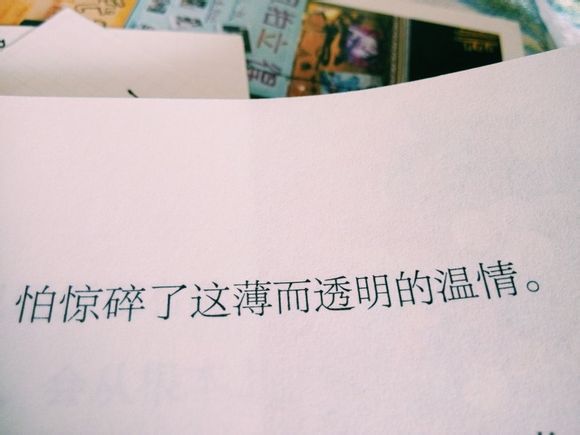 怕惊碎了这薄而透明的温情。